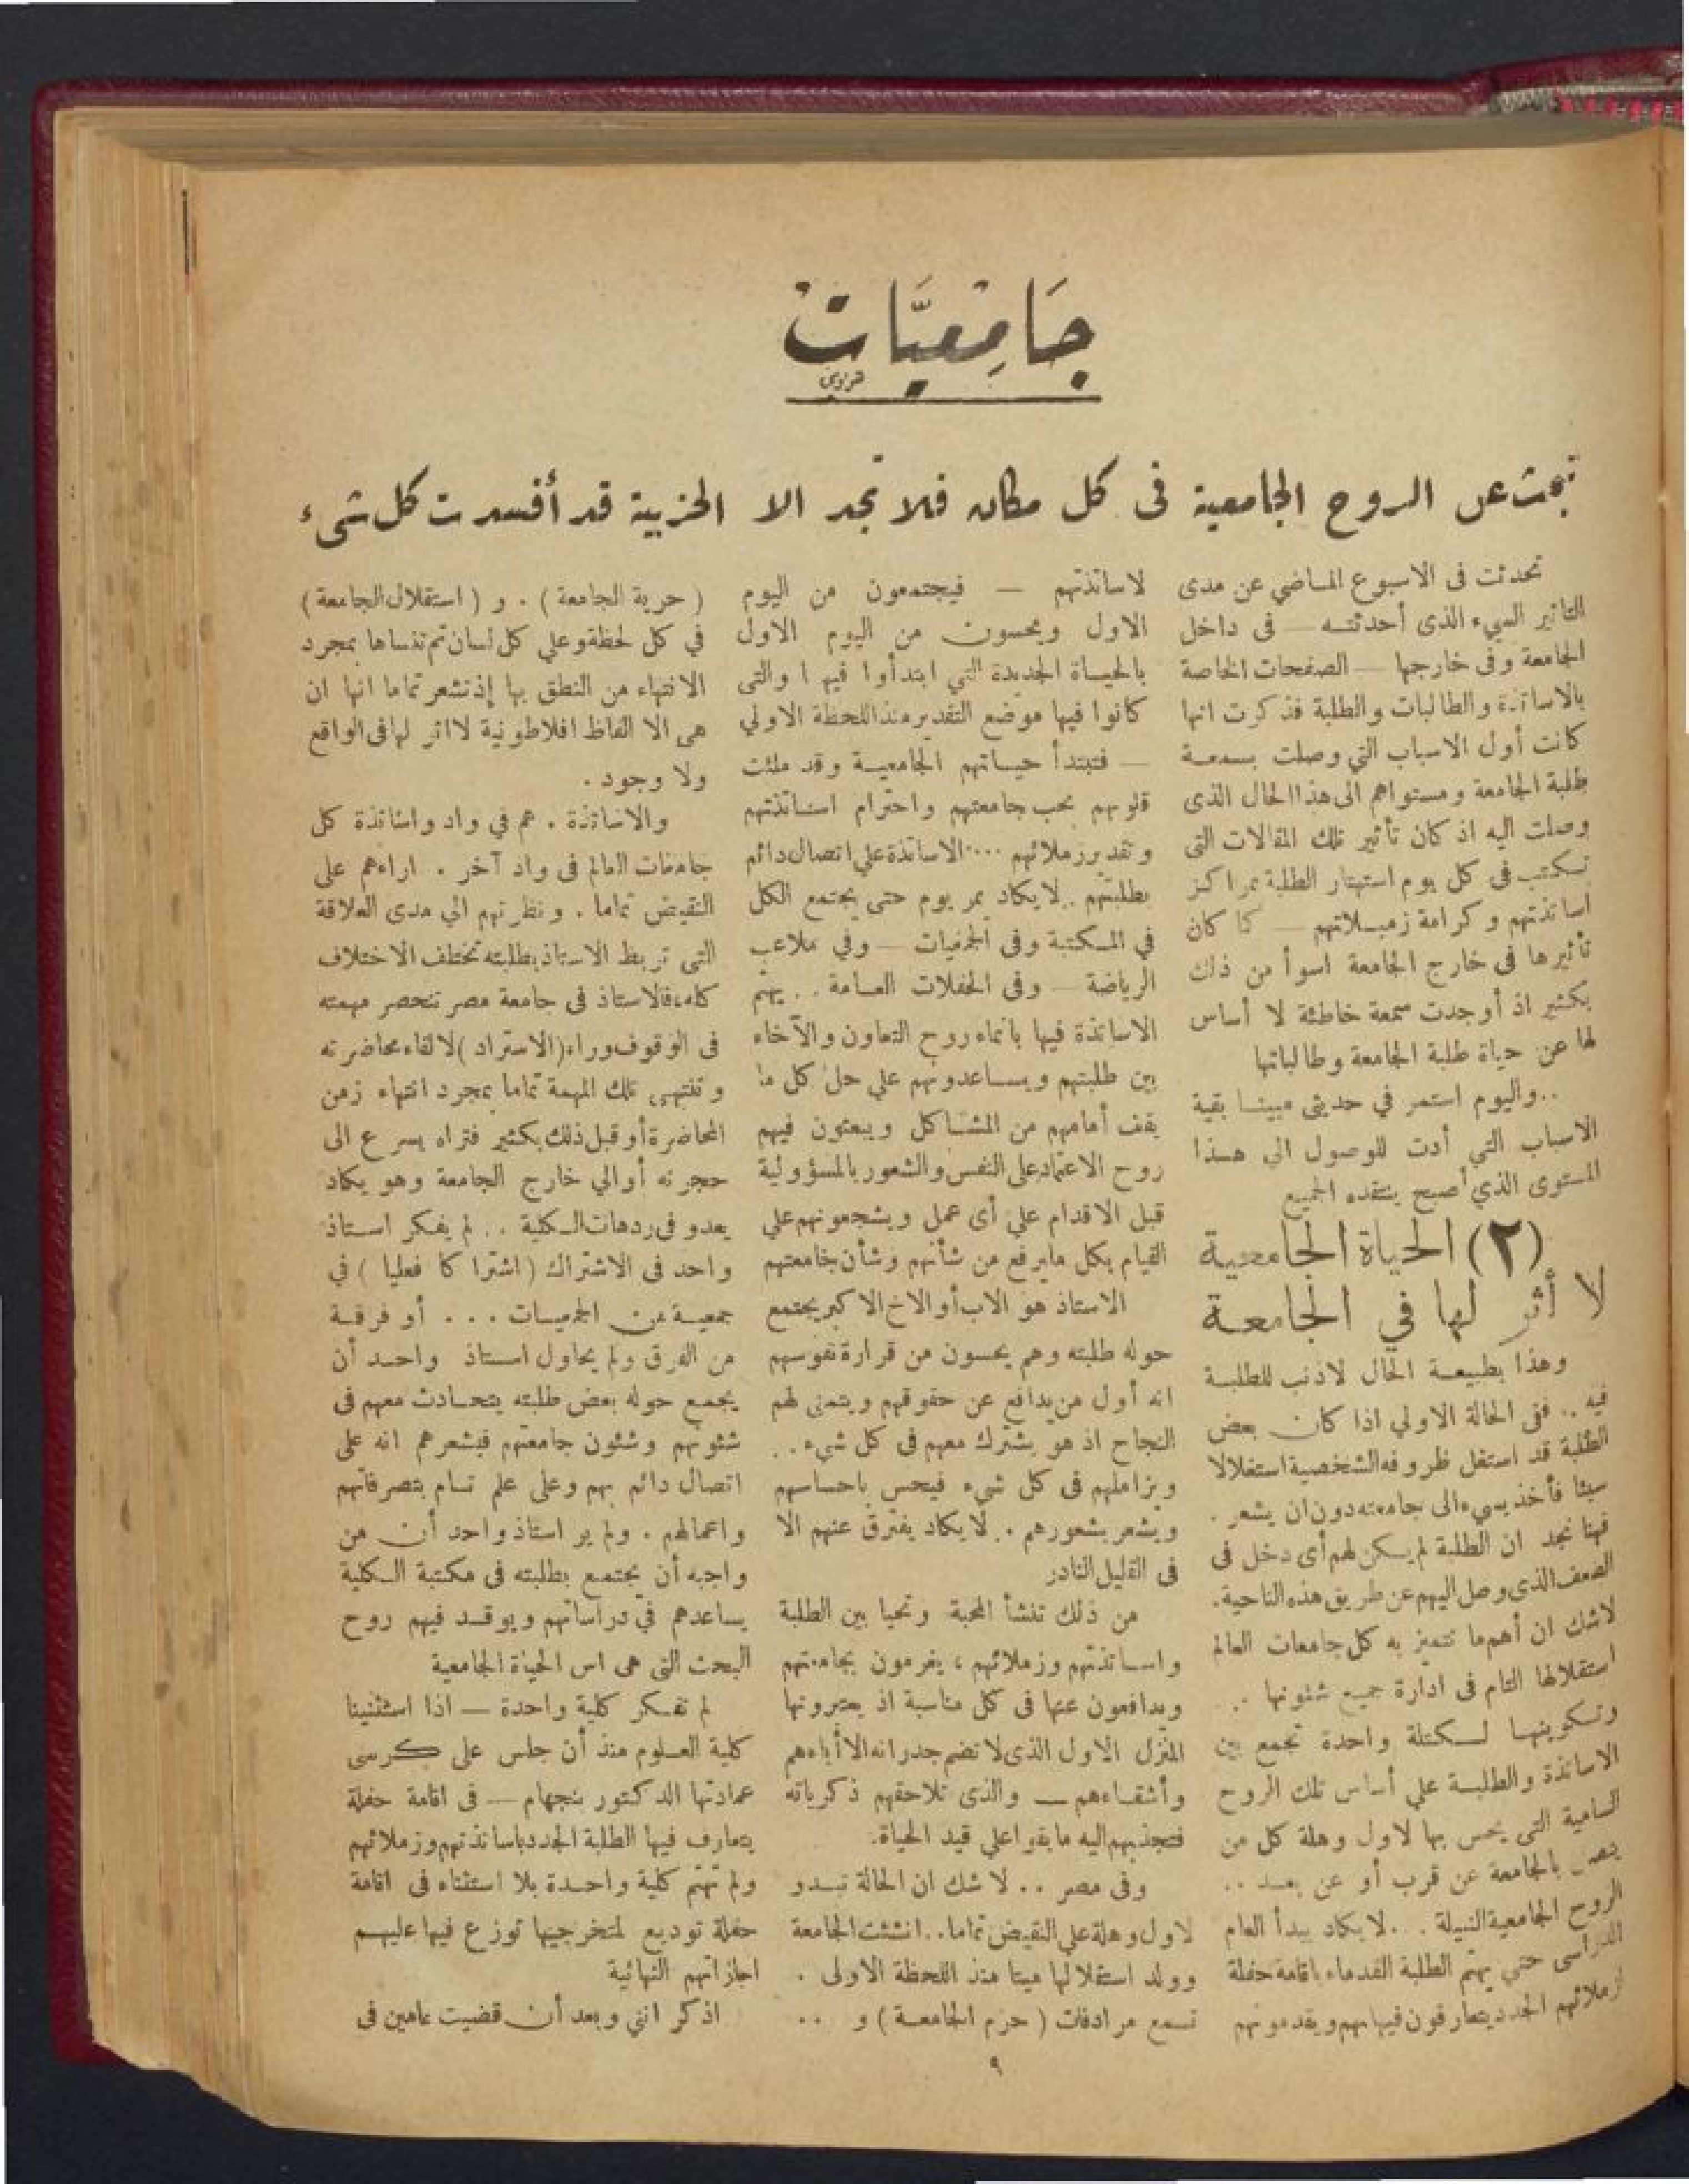 جَامِعيَّات
تبحث عن الروح الجامعية فى كل مكان فلا تجد الا الحزبية قد أفسدت كل شىء
تحدثت فى الاسبوع الماضي عن مدى
التأثير السيء الذى أحدثته — فى داخل
الجامعة وفى خارجها — الصفحات الخاصة
بالاساتذة والطالبات والطلبة فذكرت انها
كانت أول الاسباب التي وصلت بسمعة
طلبة الجامعة ومستواهم الى هذا الحال الذى
وصلت اليه اذ كان تأثير تلك المقالات التى
تكتب فى كل يوم استهتار الطلبة بمراكز
اساتذتهم وكرامة زميلاتهم — كما كان
تأثيرها فى خارج الجامعة اسوأ من ذلك
بكثير اذ أوجدت سمعة خاطئة لا أساس
لها عن حياة طلبة الجامعة وطالباتها
..واليوم استمر في حديثى مبينا بقية
الاسباب التي أدت للوصول الى هذا
المستوى الذي أصبح ينتقده الجميع
(٢) الحياة الجامعية
لا أثر لها في الجامعة
وهذا بطبيعة الحال لاذنب للطلبة
فيه .. ففى الحالة الاولي اذا كان بعض
الطلبة قد استغل ظروفه الشخصية استغلالا
سيئا فأخذ يسيء الى جامعته دون ان يشعر .
فهنا نجد ان الطلبة لم يكن لهم أى دخل فى
الضعف الذى وصل اليهم عن طريق هذه الناحية.
لاشك ان أهم ما تتميز به كل جامعات العالم
استقلالها التام فى ادارة جميع شئونها ..
وتكوينها لكتلة واحدة تجمع بين
الاساتذة والطلبة علي أساس تلك الروح
السامية التى يحس بها لاول وهلة كل من
يتصل بالجامعة عن قرب أو عن بعد ..
الروح الجامعية النبيلة ... لا يكاد يبدأ العام
الدراسى حتي يهتم الطلبة القدماء باقامة حفلة
لزملائهم الجدد يتعارفون فيها بهم ويقدمونهم
لاساتذتهم — فيجتمعون من اليوم
الاول ويحسون من اليوم الاول
بالحياة الجديدة التي ابتدأوا فيها والتى
كانوا فيها موضع التقدير منذ اللحظة الاولي
— فتبتدأ حياتهم الجامعية وقد ملئت
قلوبهم بحب جامعتهم واحترام اساتذتهم
وتقدير زملائهم ... الاساتذة علي اتصال دائم
بطلبتهم .. لا يكاد يمر يوم حتى يجتمع الكل
في المكتبة وفى الجمعيات — وفي ملاعب
الرياضة — وفى الحفلات العامة .. يهتم
الاساتذة فيها بانماء روح التعاون والآخاء
بين طلبتهم ويساعدونهم علي حل كل ما
يقف أمامهم من المشاكل ويبعثون فيهم
روح الاعتماد على النفس والشعور بالمسؤولية
قبل الاقدام علي أى عمل ويشجعونهم على
القيام بكل ما يرفع من شأنهم وشأن جامعتهم
الاستاذ هو الاب أو الاخ الاكبر يجتمع
حوله طلبته وهم يحسون من قرارة نفوسهم
انه أول من يدافع عن حقوقهم ويتمنى لهم
النجاح اذ هو يشترك معهم فى كل شيء ..
ويزاملهم فى كل شيء فيحس باحساسهم
ويشعر بشعورهم . لا يكاد يفترق عنهم الا
فى القليل النادر
من ذلك تنشأ المحبة وتحيا بين الطلبة
واساتذتهم وزملائهم ، يغرمون بجامعتهم
ويدافعون عنها فى كل مناسبة اذ يعتبرونها
المنزل الاول الذى لا تضم جدرانه الا أباءهم
وأشقاءهم — والذى تلاحقهم ذكرياته
فتجذبهم اليه ما بقوا على قيد الحياة.
وفى مصر .. لا شك ان الحالة تبدو
لاول وهلة علي النقيض تماما.. انشئت الجامعة
وولد استقلالها ميتا منذ اللحظة الاولى .
تسمع مرادفات ( حزم الجامعة ) و ..
( حرية الجامعة ) . و ( استقلال الجامعة )
في كل لحظة وعلي كل لسان ثم تنساها بمجرد
الانتهاء من النطق بها إذ تشعر تماما انها ان
هى الا الفاظ افلاطونية لا اثر لها فى الواقع
ولا وجود .
والاساتذة . هم في واد واساتذة كل
جامعات العالم فى واد آخر . اراءهم على
النقيض تماما . ونظرتهم الي مدى العلاقة
التى تربط الاستاذ بطلبته تختلف الاختلاف
كله، فالاستاذ فى جامعة مصر تنحصر مهمته
فى الوقوف وراء (الاستراد ) لالقاء محاضرته
وتنتهى تلك المهمة تماما بمجرد انتهاء زمن
المحاضرة أو قبل ذلك بكثير فتراه يسرع الى
حجرته أو الي خارج الجامعة وهو يكاد
يعدو فى ردهات الكلية .. لم يفكر استاذ
واحد فى الاشتراك ( اشتراكا فعليا ) في
جمعية من الجمعيات ... أو فرقة
من الفرق ولم يحاول استاذ واحد أن
يجمع حوله بعض طلبته يتحادث معهم فى
شئونهم وشئون جامعتهم فيشعرهم انه على
اتصال دائم بهم وعلى علم تام بتصرفاتهم
واعمالهم . ولم ير استاذ واحد أن من
واجبه أن يجتمع بطلبته فى مكتبة الكلية
يساعدهم في دراساتهم ويوقد فيهم روح
البحث التى هى اس الحياة الجامعية
لم تفكر كلية واحدة — اذا استثنينا
كلية العلوم منذ أن جلس على كرسى
عمادتها الدكتور بنجهام — فى اقامة حفلة
يتعارف فيها الطلبة الجدد باساتذتهم وزملائهم
ولم تهتم كلية واحدة بلا استثناء فى اقامة
حفلة توديع لمتخرجيها توزع فيها عليهم
اجازاتهم النهائية
اذكر انني وبعد أن قضيت عامين فى
٩